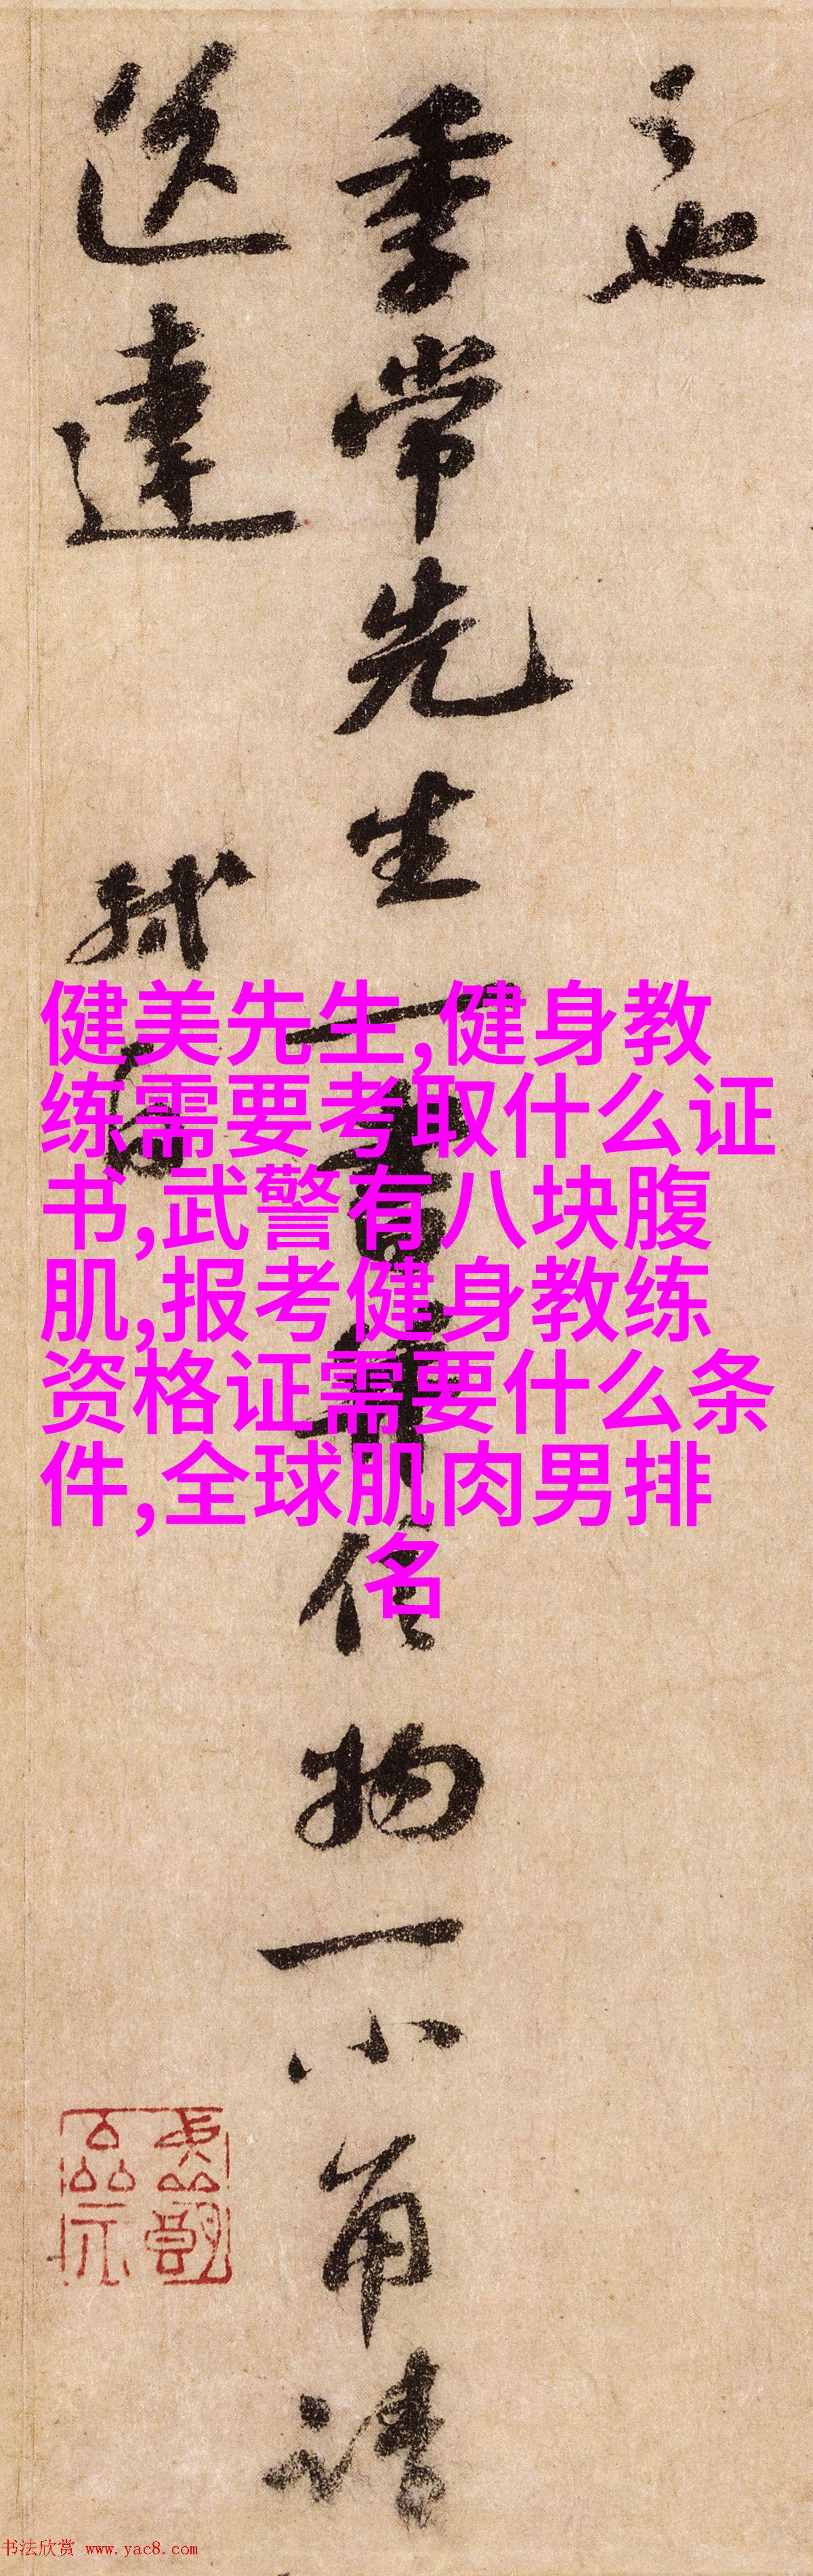 之也
季常先生一書并信物一小角請
送達 軾白
健美先生,健身教
练需要考取什么证
书,武警有八块腹
肌,报考健身教练
资格证需要什么条
件,全球肌肉男排
名
书法欣赏 www.yac8.com